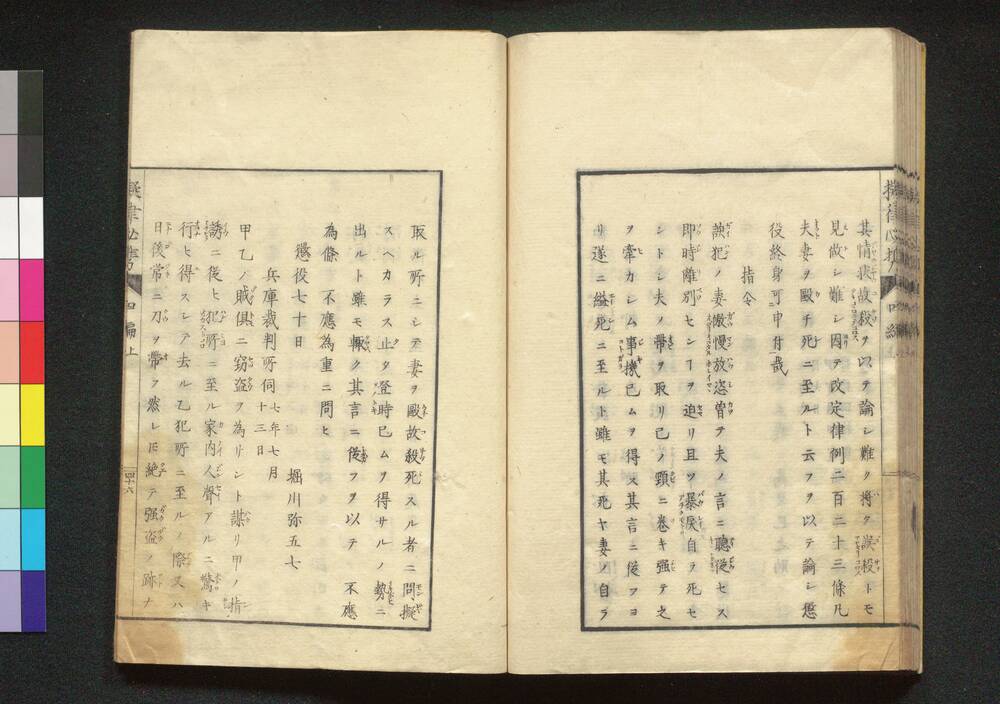 其情状故殺ヲ以テ論シ難ク将タ誤殺トモ
見做シ難シ因テ改定律例二百二十三條凡
夫妻ヲ毆チ死ニ至ルト云フヲ以テ論シ懲
役終身可申付哉
指令
該犯ノ妻傲慢放恣曽テ夫ノ言ニ聴従セス
即時離別センヿヲ迫リ且ツ暴戻自ラ死セ
ントシ夫ノ帯ヲ取リ己ノ頸ニ巻キ強テ之
ヲ牽カシム事機已ムヲ得ス其言ニ従フヨ
リ遂ニ縊死ニ至ルト雖モ其死ヤ妻ノ自ラ
取ル所ニシテ妻ヲ毆故殺死スル者ニ問擬
スヘカラス止タ登時已ムヲ得サルノ勢ニ
出ルト雖モ輙ク其言ニ従フヲ以テ 不應
為條 不應為重ニ問ヒ
懲役七十日 堀川弥五七
兵庫裁判所伺 七年七月十三日
甲乙ノ賊俱ニ窃盗ヲ為サント謀リ甲ノ指
誘ニ従ヒ犯所ニ至ル家内人聲アルニ驚キ
行ヒ得スシテ去ル乙犯所ニ至ルノ際又ハ
日後常ニ刀ヲ帯フ然レ𪜈絶テ强盗ノ跡ナ
四編上
四十六